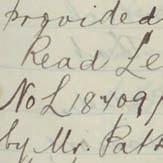 provided
Read Le
No L 18409/
by Mr. Patt